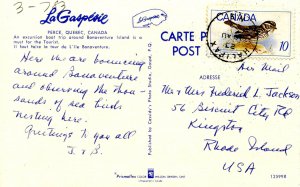 3-783
La Gaspésie
PERCE, QUEBEC, CANADA
An excursion boat trip around Bonaventure Island is a must for the Tourist.
Il faut faire le tour de l'Ile Bonaventure.
Here we are bouncing
around Bonaventure
and observing the thou-
sands of sea birds
nesting here.
Greetings to you all
J. & B.
CARTE P
POST
CANADA
10
Air Mail
ADRESSE
Mr & Mrs Frederick L. Jackson
56 Biscuit City Rd
Kingston
Rhode Island
USA
125998